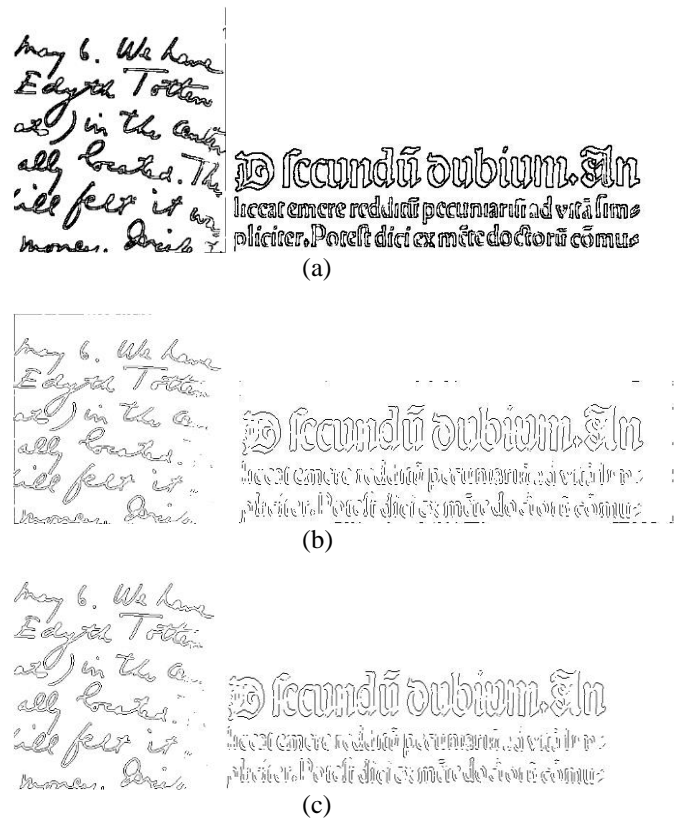 may 6. We have
Edyth Totten
at) in the center
ally located. The
ill felt it
money.
D ſecundū dubium. An
liceat emere redditū pecuniariū ad vitā ſim⸗
pliciter. Poteſt dici ex mēte doctorū cōmu⸗
(a)
may 6. We have
Edyth Totten
at) in the
ally located.
ill felt it
money.
D ſecundū dubium. An
liceat emere redditū pecuniariū ad vitā
pliciter. Poteſt dici ex mēte doctorū cōmu⸗
(b)
may 6. We have
Edyth Totten
at) in the
ally located.
ill felt it
money.
D ſecundū dubium. An
liceat emere redditū pecuniariū ad vitā
pliciter. Poteſt dici ex mēte doctorū cōmu⸗
(c)